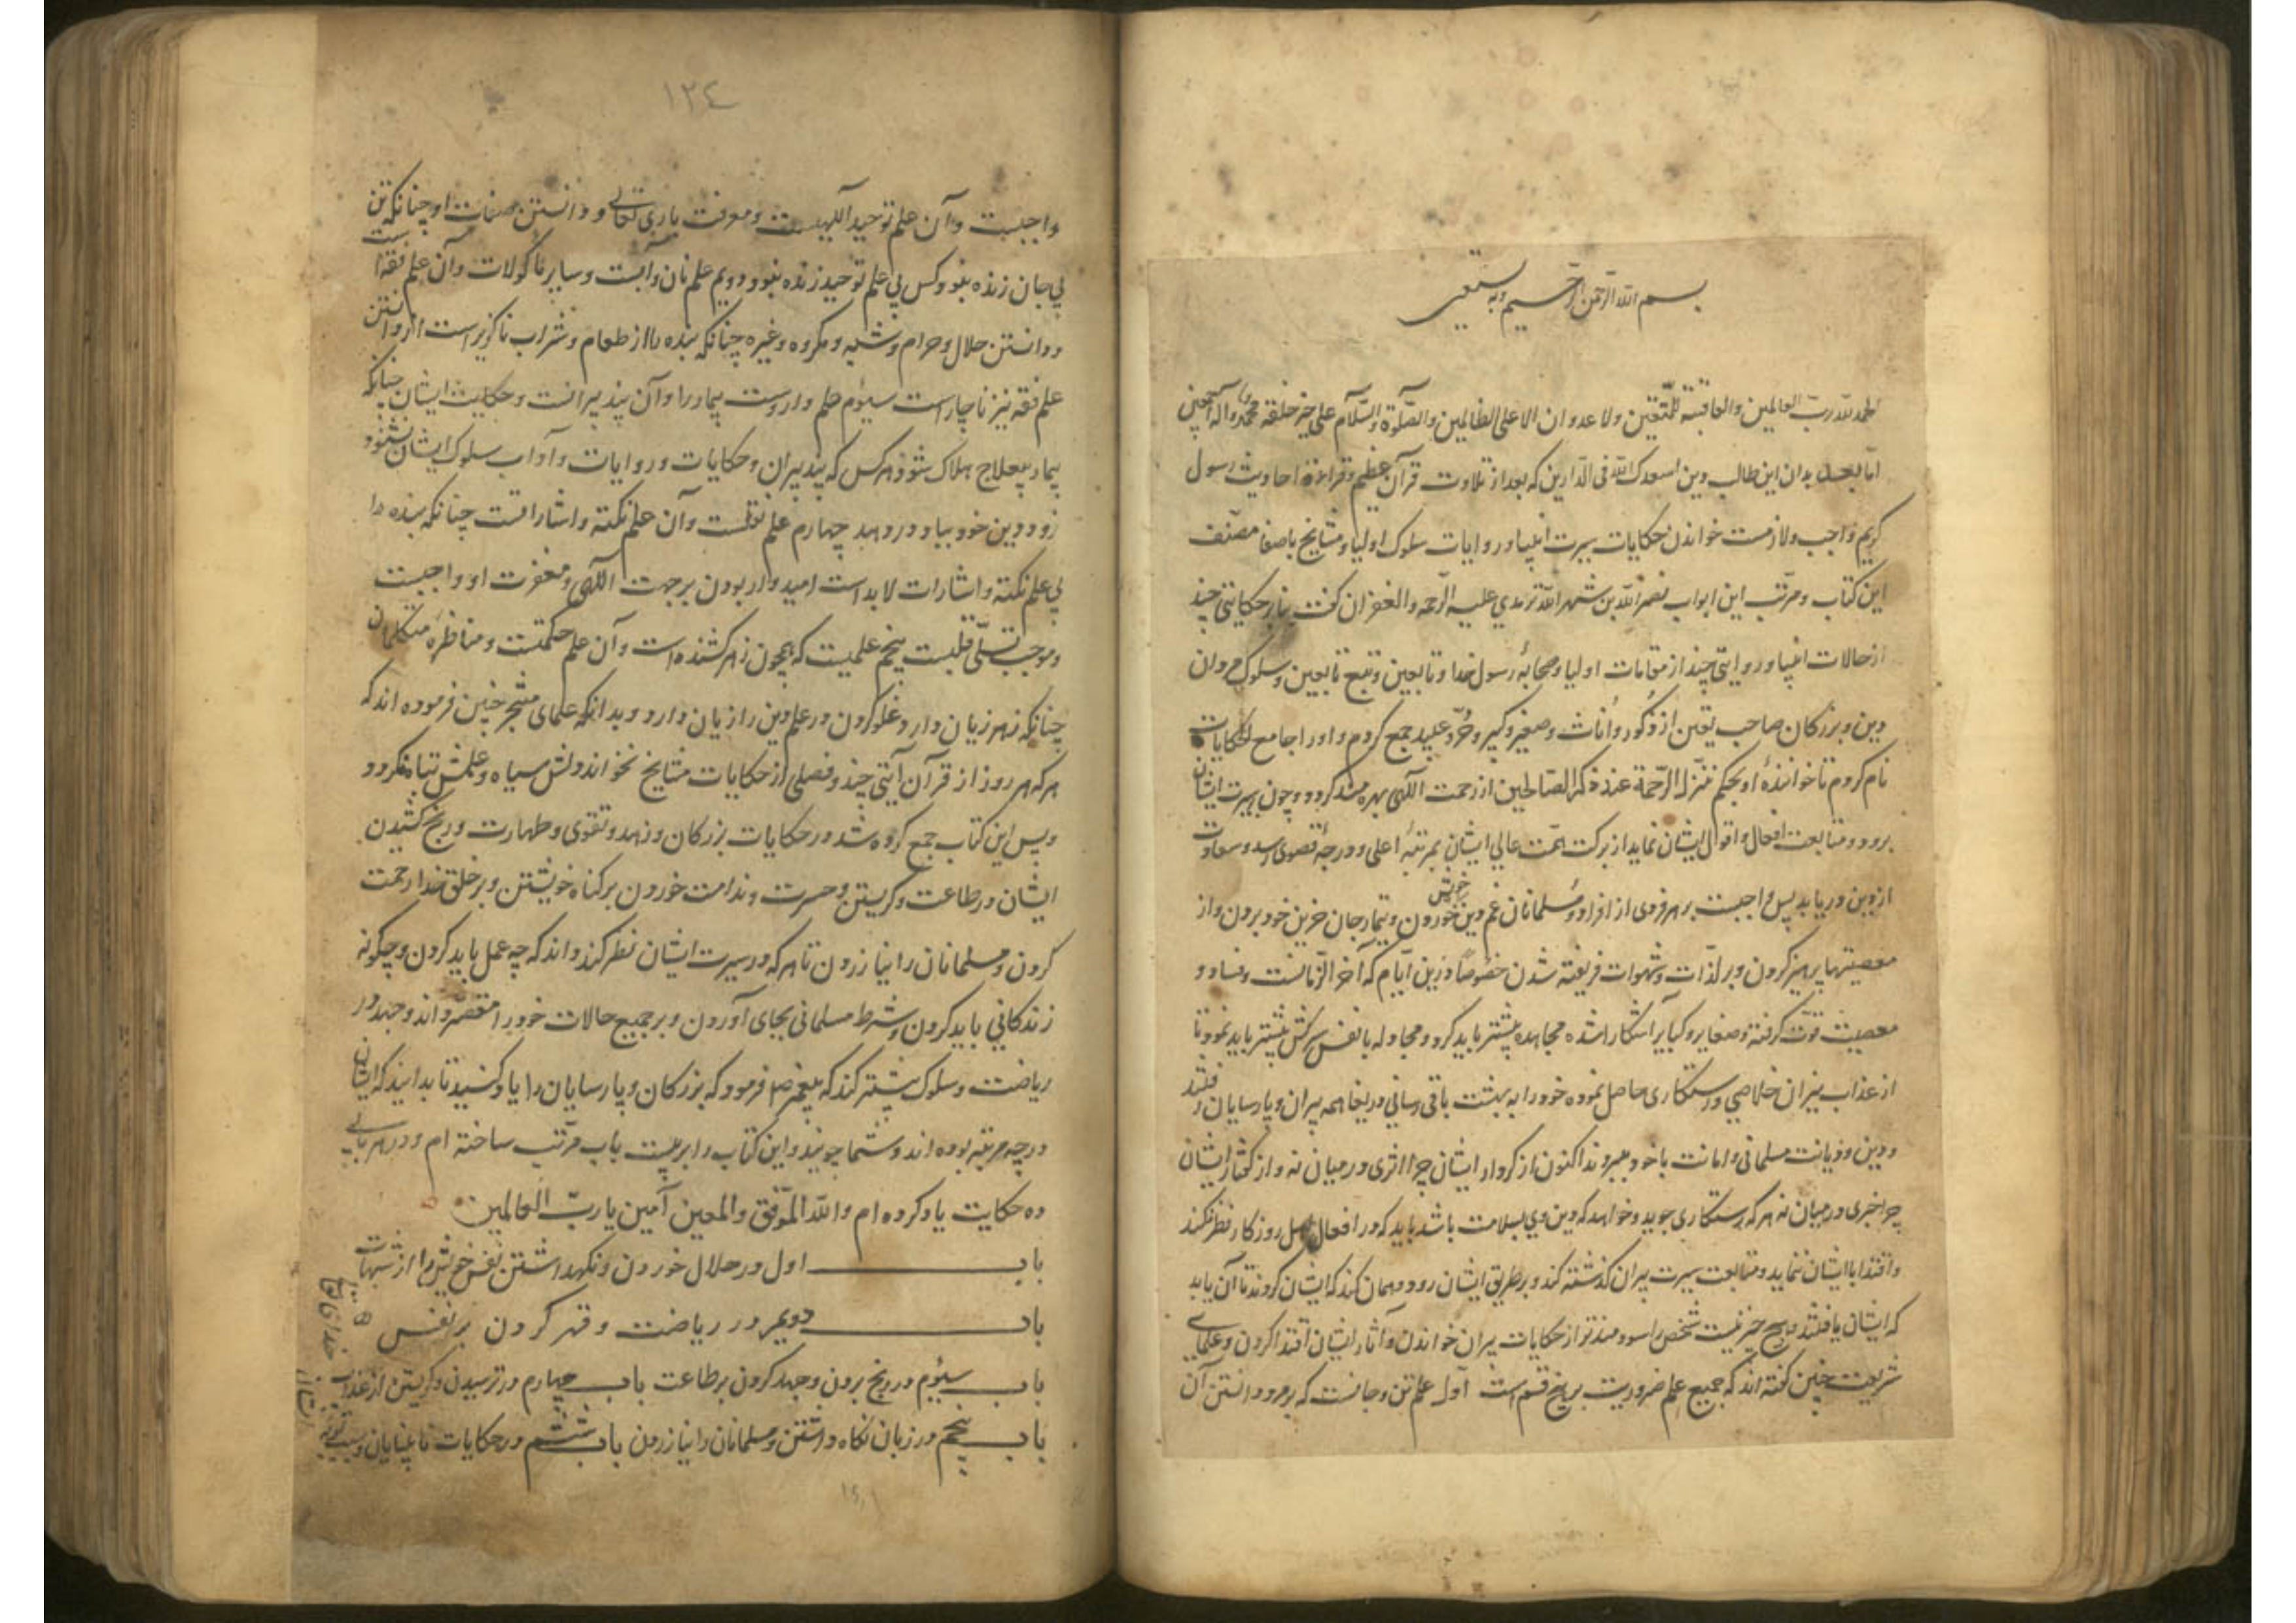 بسم الله الرحمن الرحیم وبه نستعین
الحمد لله رب العالمین والعاقبة للمتقین ولا عدوان الا علی الظالمین والصلوة والسلام علی خیر خلقه محمد وآله اجمعین
اما بعد بدان این طالب دین اسعدک الله فی الدارین که بعد از تلاوت قرآن عظیم وقراءة احادیث رسول
کریم واجب ولازمست خواندن حکایات سیرت انبیا وروایات سلوک اولیا ومشایخ باصفا مصنف
این کتاب ومرتب این ابواب نصرالله بن شهرالله ترمدی علیه الرحمه والغفران کفت حکایتی چند
از حالات انبیا وروایتی چند از مقامات اولیا وصحابهٔ رسول خدا وتابعین وتبع تابعین وسلوک مردان
دین وبزرکان صاحب یقین از ذکور واناث وصغیر وکبیر وحر وعبید جمع کردم واورا جامع الحکایات
نام کردم تا خوانندهٔ او بحکم تنزل الرحمة عند ذکر الصالحین از رحمت آلهی بهره مند کردد وچون بسیرت ایشان
برود ومتابعت افعال واقوال ایشان نماید از برکت همت عالی ایشان بمرتبهٔ اعلی ودرجهٔ قصوی رسد وسعادت
ازین دریابد پس واجبست بر هر فردی از افراد مسلمانان غم دین خویش خوردن وتیمار جان حزین خود بردن واز
معصیتها پرهیز کردن وبر لذات وشهوات فریفته شدن خصوصا درین ایام که آخر الزمانست وفساد و
معصیت قوت کرفته وصغایر وکبایر آشکارا شده مجاهده بیشتر باید کرد ومجادله با نفس سرکش بیشتر باید نمود تا
از عذاب نیران خلاصی ورستکاری حاصل نموده خود را به بهشت باقی رسانی دریغا همه پیران وپارسایان رفتند
ودین ودیانت مسلمانی وامانت با خود ببردند اکنون از کردار ایشان چرا اثری در میان نه واز کفتار ایشان
چرا خبری در میان نه هر که رستکاری جوید وخواهد که دین وی بسلامت باشد باید که در افعال اهل روزکار نظر نکند
واقتدا با ایشان ننماید ومتابعت سیرت پیران کذشته کند وبر طریق ایشان رود وهمان کند که ایشان کردند تا آن یابد
که ایشان یافتند وهیچ چیز نیست شخص را سودمندتر از حکایات پیران خواندن وآثار ایشان اقتدا کردن وعلمای
شریعت چنین کفته اند که جمیع علم ضروریست بر پنج قسم است اول علم تن وجانست که بر مرد دانستن آن
١٣٤
واجبست وآن علم توحید آلهیست ومعرفت باری تعالی ودانستن صفات او چنانکه تن
بی جان زنده نبود وکس بی علم توحید زنده نبود دویم علم نان وآبست وسایر ماکولات وآن علم فقه است
ودانستن حلال وحرام وشبه ومکروه وغیره چنانکه بنده را از طعام وشراب ناکزیر است از دانستن
علم فقه نیز ناچار است سیوم علم داروست بیمار را وآن پند پیرانست وحکایت ایشان چنانکه
بیمار بیعلاج هلاک شود هر کس که پند پیران وحکایات وروایات وآداب سلوک ایشان نشنود
زود دین خود بباد در دهد چهارم علم نقلست وآن علم نکته واشاراتست چنانکه بنده را
بی علم نکته واشارات لابد است امیدوار بودن برحمت آلهی ومغفرت او واجبست
وموجب تسلی قلبست پنجم علمیست که همچون زهر کشنده است وآن علم حکمتست ومناظرهٔ متکلمان
چنانکه زهر زیان دارد غلو کردن در علم دین را زیان دارد وبدانکه علمای متبحر چنین فرموده اند که
هر که هر روز از قرآن آیتی چند وفصلی از حکایات مشایخ نخواند دلش سیاه وعلمش تباه کردد
وپس این کتاب جمع کرده شد در حکایات بزرکان وزهد وتقوی وطهارت ورنج کشیدن
ایشان در طاعت وکریستن وحسرت وندامت خوردن بر کناه خویشتن وبر خلق خدا رحمت
کردن ومسلمانان را نیازردن تا هر که در سیرت ایشان نظر کند داند که چه عمل باید کردن وچکونه
زندکانی باید کردن وشرط مسلمانی بجای آوردن وبر جمیع حالات خود را مقصر داند وجهد در
ریاضت وسلوک بیشتر کند که پیغمبر ص فرمود که بزرکان وپارسایان را یاد کنید تا بدانید که ایشان
در چه مرتبه بوده اند وشما چونید واین کتاب را بر بیست باب مرتب ساخته ام ودر هر بابی
ده حکایت یاد کرده ام والله الموفق والمعین آمین یا رب العالمین
باب اول در حلال خوردن ونکهداشتن نفس خویش را از شبهات
باب دویم در ریاضت وقهر کردن بر نفس
باب سیوم در رنج بردن وجهد کردن بر طاعت باب چهارم در ترسیدن وکریستن از عذاب
خدای تعالی
باب پنجم در زبان نکاه داشتن ومسلمانان را نیازردن باب ششم در حکایات نابینایان وسبب توبه
ایشان